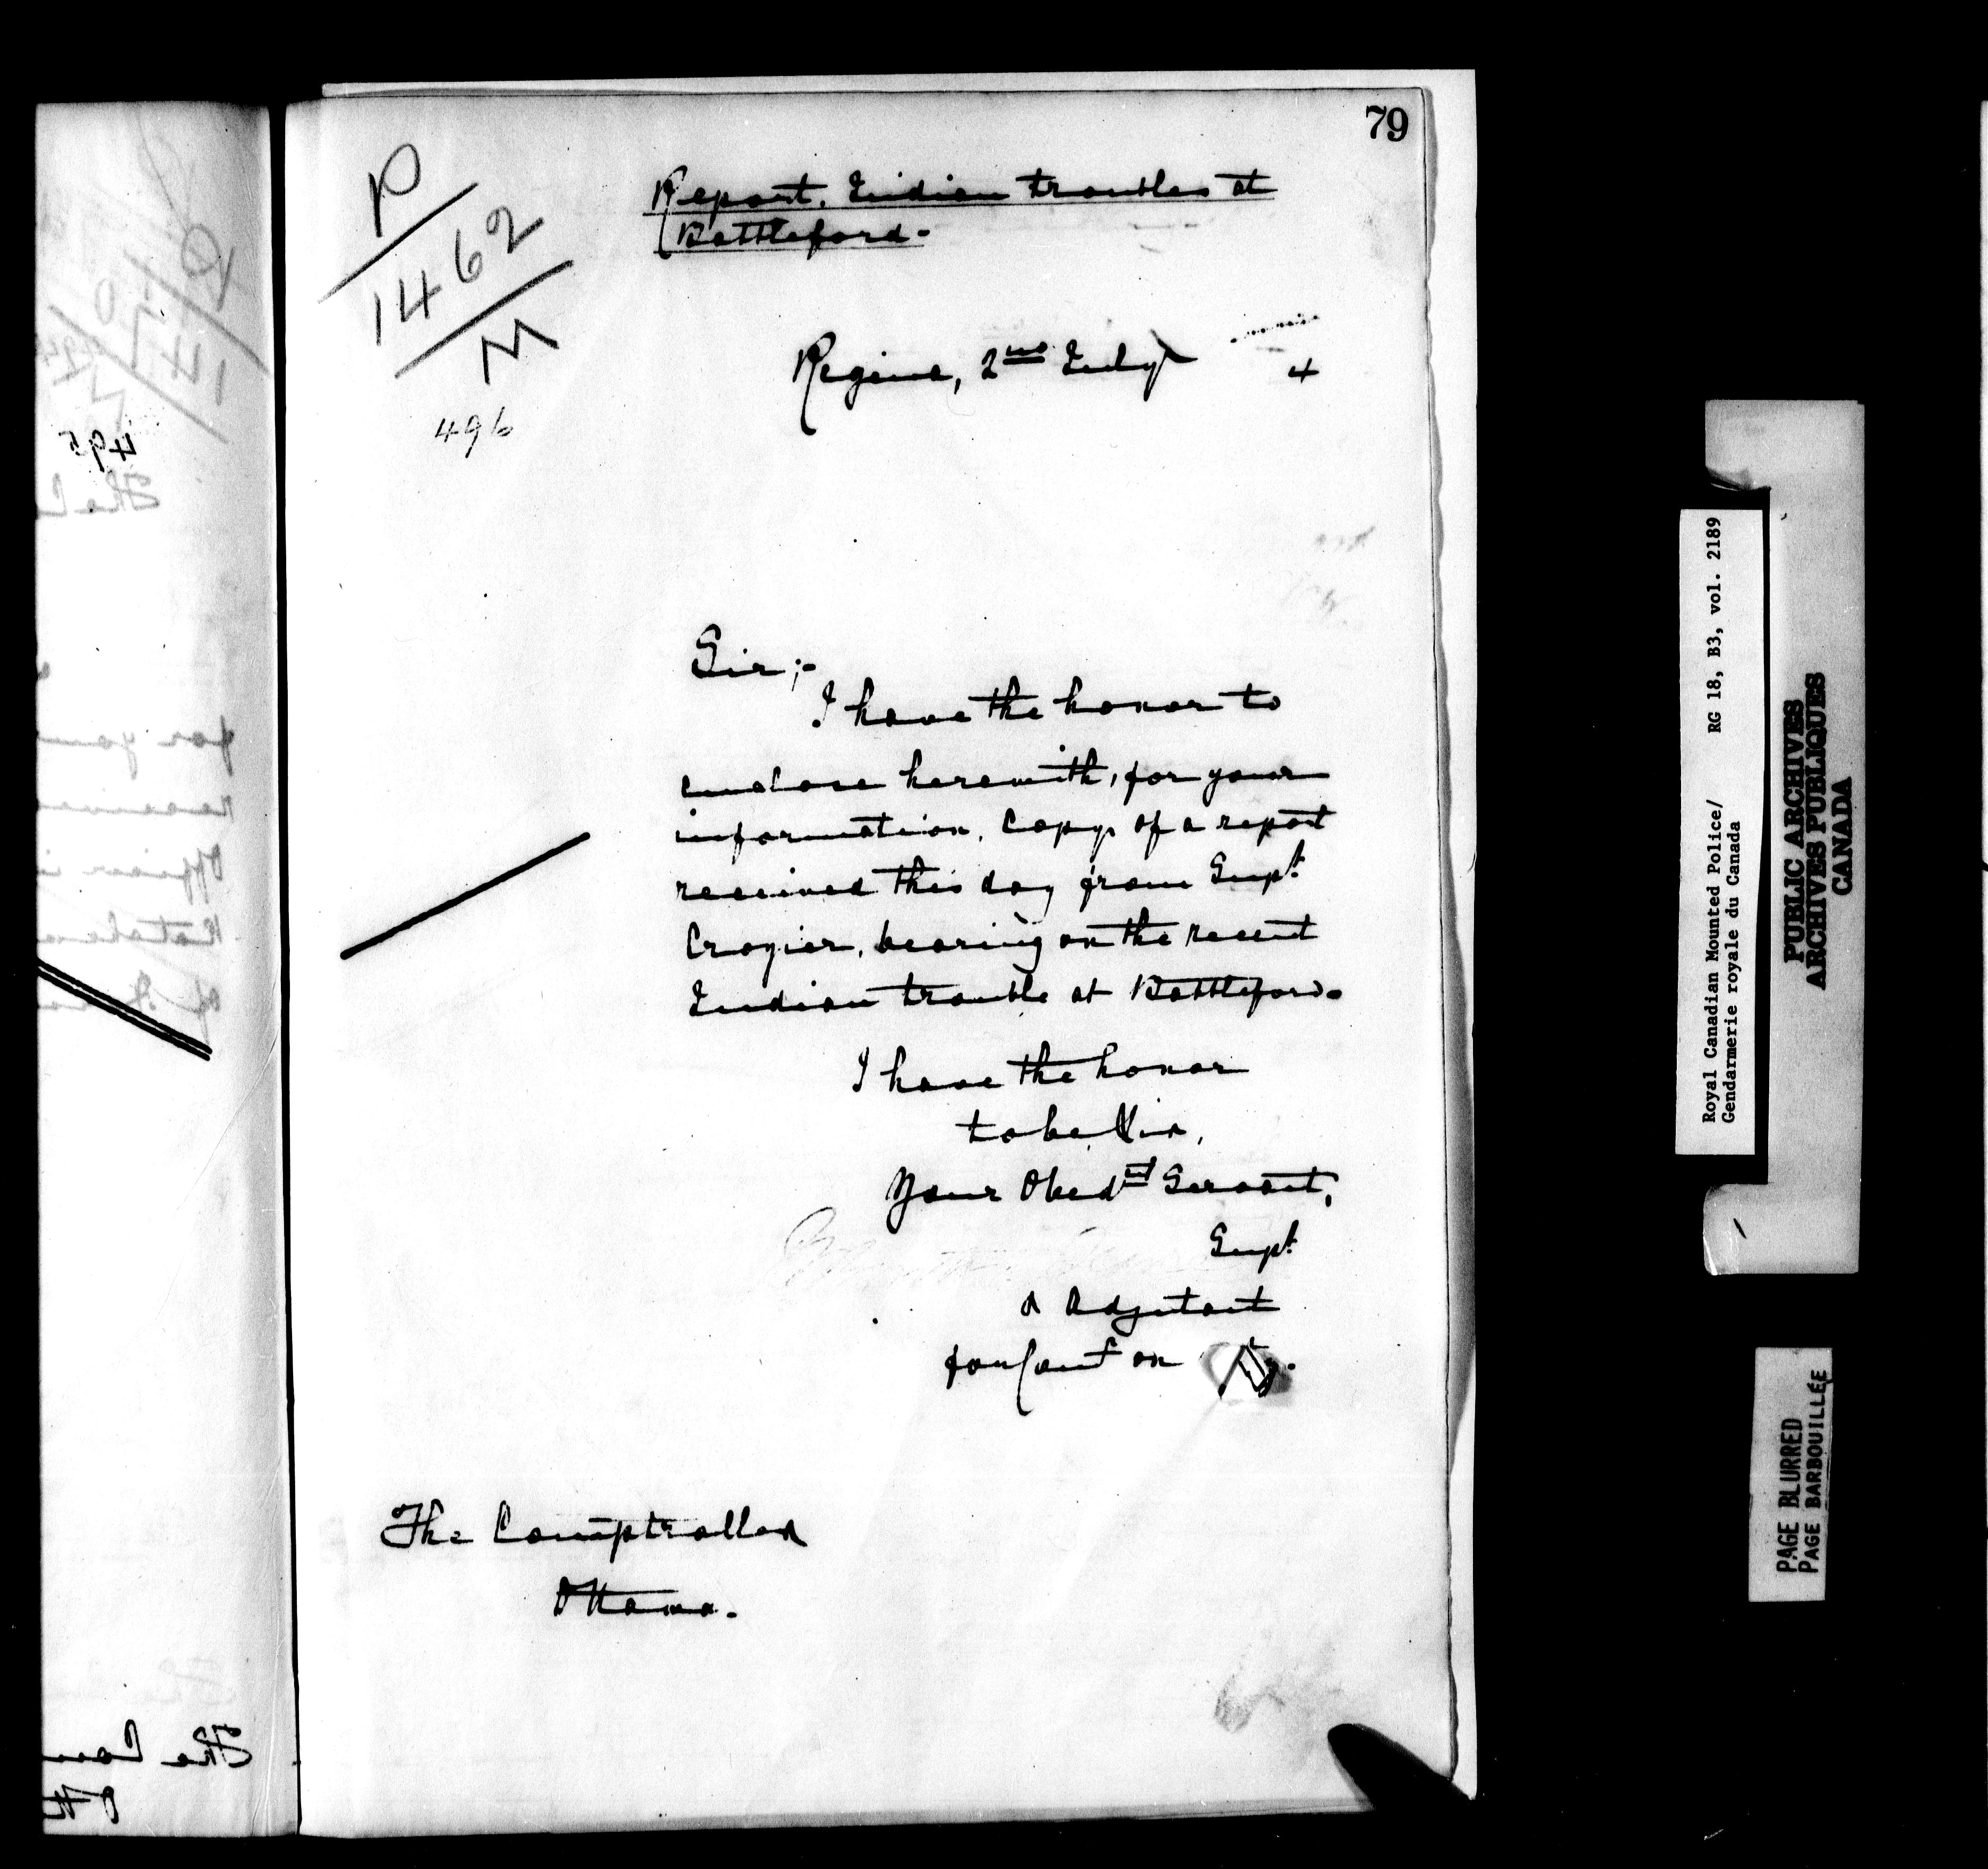 79
P
1462
M
496
Report. Indian troubles at
Battleford.
Regina, 2nd July 4
Sir;-
I have the honor to
enclose herewith, for your
information, copy of a report
received this day from Supt
Crozier, bearing on the recent
Indian trouble at Battleford.
I have the honor
to be Sir,
Your Obednt Servant,
Supt
& Adjutant
for Comt on
The Comptroller
Ottawa.
495
The C
for your
Officer i
of
The Com
Ott
Royal Canadian Mounted Police/ RG 18, B3, vol. 2189
Gendarmerie royale du Canada
PUBLIC ARCHIVES
ARCHIVES PUBLIQUES
CANADA
PAGE BLURRED
PAGE BARBOUILLÉE